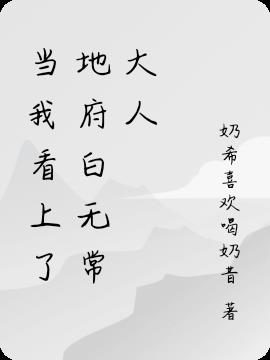 当我看上了
地府白无常
大人
奶希喜欢喝奶昔 著